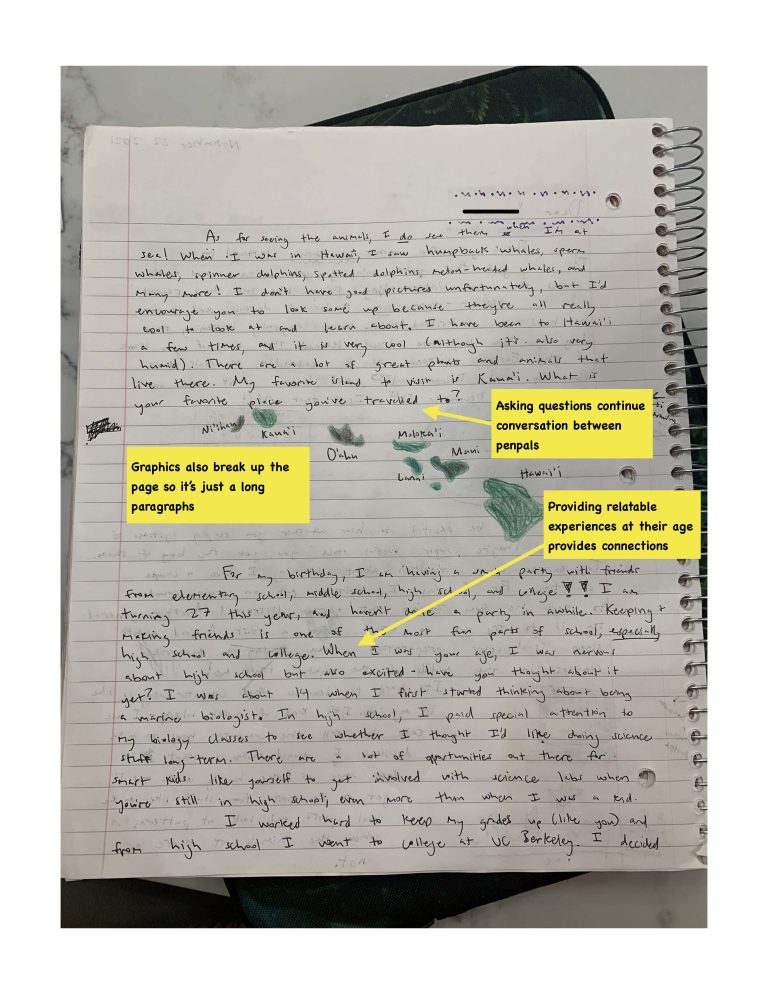 November 22 2021
As for seeing the animals, I do see them when I'm at
sea! When I was in Hawai'i, I saw humpback whales, sperm
whales, spinner dolphins, spotted dolphins, melon-headed whales, and
many more! I don't have good pictures unfortunately, but I'd
encourage you to look some up because they're all really
cool to look at and learn about. I have been to Hawai'i
a few times, and it is very cool (although it's also very
humid). There are a lot of great plants and animals that
live there. My favorite island to visit is Kaua'i. What is
your favorite place you've travelled to?
Asking questions continue
conversation between
penpals
Ni'ihau
Kaua'i
O'ahu
Moloka'i
Lanai
Maui
Hawai'i
Graphics also break up the
page so it's just a long
paragraphs
Providing relatable
experiences at their age
provides connections
For my birthday, I am having a small party with friends
from elementary school, middle school, high school, and college!! I am
turning 27 this year, and haven't done a party in awhile. Keeping +
making friends is one of the most fun parts of school, especially
high school and college. When I was your age, I was nervous
about high school but also excited - have you thought about it
yet? I was about 14 when I first started thinking about being
a marine biologist. In high school, I paid special attention to
my biology classes to see whether I thought I'd like doing science
stuff long-term. There are a lot of opportunities out there for
smart kids like yourself to get involved with science labs when
you're still in high school, even more than when I was a kid.
I worked hard to keep my grades up (like you) and
from high school I went to college at UC Berkeley. I decided